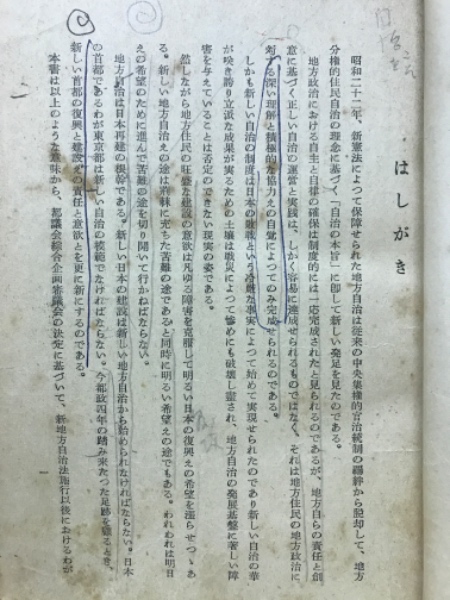 はしがき
昭和二十二年、新憲法によつて保障せられた地方自治は従来の中央集権的官治統制の羈絆から脱却して、地方
分権的住民自治の理念に基づく「自治の本旨」に即して新しい発足を見たのである。
地方政治における自主と自律の確保は制度的には一応完成されたと見られるのであるが、地方自らの責任と創
意に基づく正しい自治の運営と実践は、しかく容易に達成せられるものではなく、それは地方住民の地方政治に
対する深い理解と積極的な協力えの自覚によつてのみ完成せられるのである。
しかも新しい自治の制度は日本の敗戦という冷厳な事実によつて始めて実現せられたのであり新しい自治の華
が咲き勝り立派な成果が実るための土壌は戦災によつて惨めにも破壊し盡され、地方自治の発展基盤に著しい障
害を与えていることは否定のできない現実の姿である。
然しながら地方住民の旺盛な建設の意欲は凡ゆる障害を克服して明るい日本の復興えの希望を濡らせつゝあ
る。新しい地方自治えの途は荊棘に充ちた苦難の途であると同時に明るい希望えの途でもある。われわれは明日
えの希望のために進んで苦難の途を切り開いて行かねばならない。
地方自治は日本再建の根幹である。新しい日本の建設は新しい地方自治から始められなければならない。日本
の首都であるわが東京都は新しい自治の模範でなければならない。今都政四年の踏み来たつた足跡を顧るとき、
新しい首都の復興と建設えの責任と意欲とを更に新にするのである。
本書は以上のような意味から、都議会綜合企画審議会の決定に基づいて、新地方自治法施行以後におけるわが
一